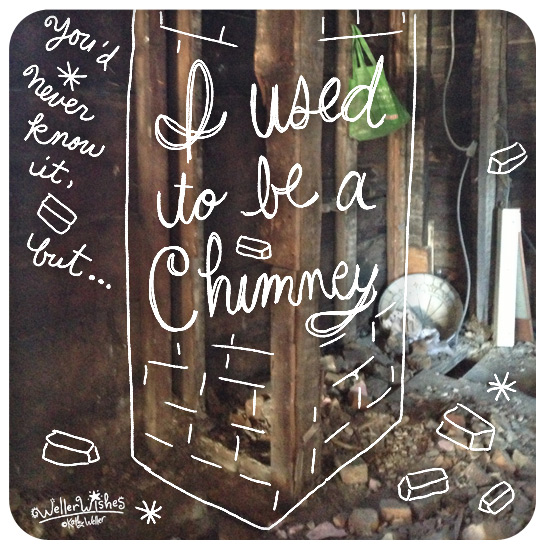 You'd
never
know
it,
but...
I used
to be a
Chimney
WellerWishes
©Kathy Weller